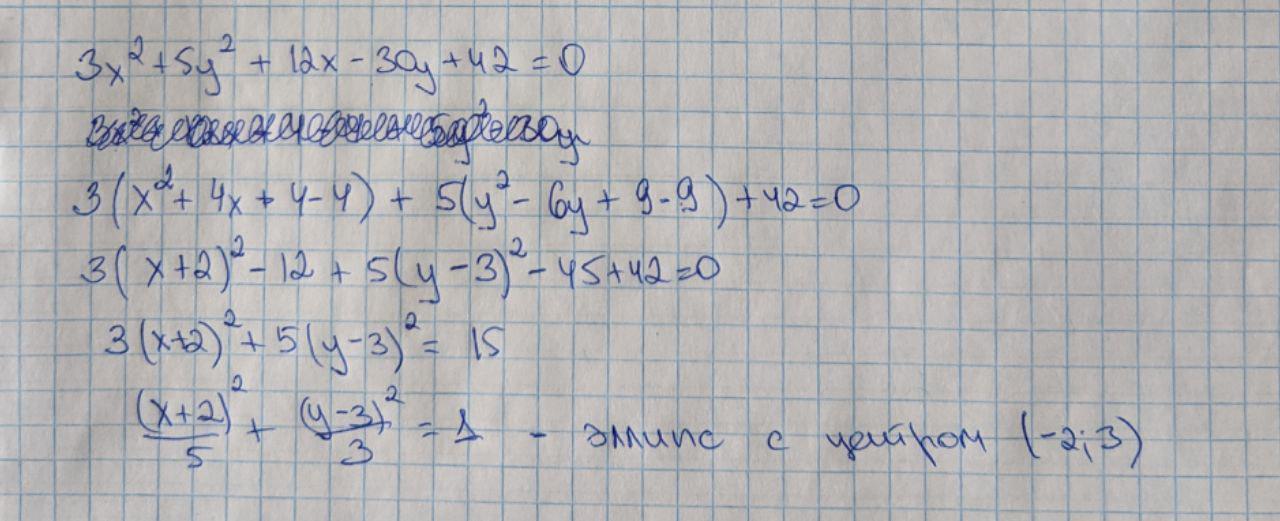 3x² + 5y² + 12x - 30y + 42 = 0
3(x² + 4x + 4 - 4) + 5(y² - 6y + 9 - 9) + 42 = 0
3(x+2)² - 12 + 5(y-3)² - 45 + 42 = 0
3(x+2)² + 5(y-3)² = 15
(x+2)²/5 + (y-3)²/3 = 1 - эллипс с центром (-2; 3)